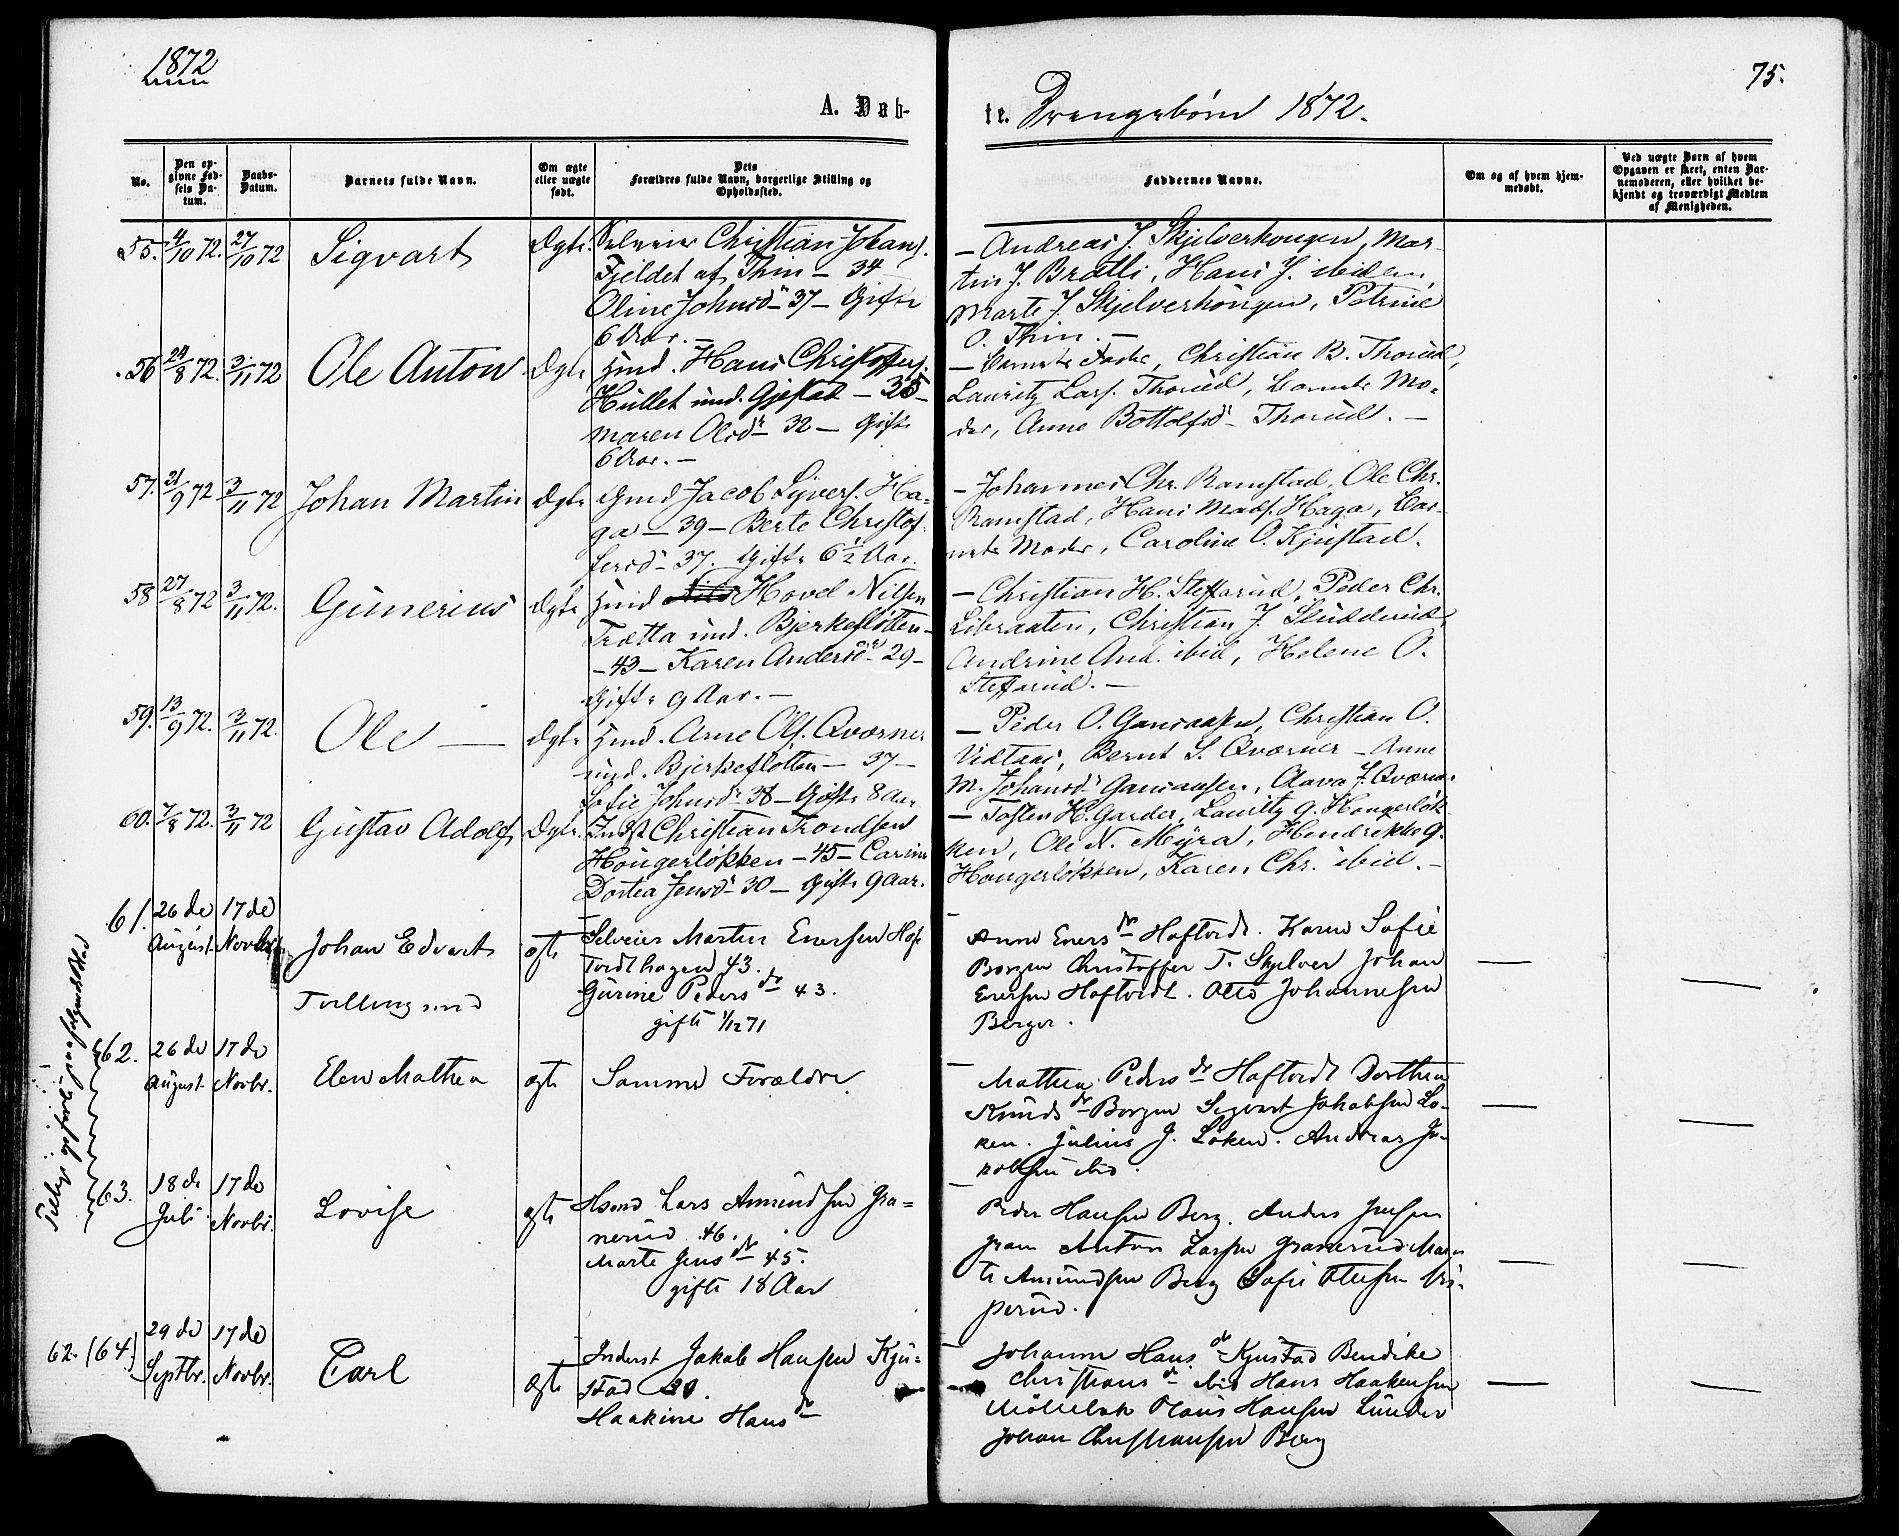 1872
75.
A. Døb-
te. Drengebørn 1872.
No.
Den op-
givne Fød-
sels Da-
tum.
Daabs-
Datum.
Barnets fulde Navn.
Om ægte
eller uægte
født.
Dets
Forældres fulde Navn, borgerlige Stilling og
Opholdssted.
Faddernes Navne.
Om og af hvem hjem-
medøbt.
Ved uægte Børn af hvem
Opgaven er skeet, enten Bar-
nemoderen, eller hvilket be-
kjendt og troværdigt Medlem
af Menigheden.
55. 4/10 72. 27/10 72 Sigvart Ægte. Selveier Christian Johans.
Fjeldet af Thin – 34
Oline Johnsdr – 37 – Gifte
6 Aar. –
– Andreas J. Skjelverhougen, Mar-
tin J. Bratli, Hans J. ibidem,
Marte J. Skjelverhougen, Petrine
O. Thin. –
56 24/8 72. 3/11 72 Ole Anton Ægte Hmd. Hans Christoffers.
Hullet und. Gjestad – 35 –
Maren Olsdr – 32 – Gifte
6 Aar. –
– Barnets Fader, Christian B. Thorud,
Lauritz Lars. Thorud, Barnets Mo-
der, Anne Bottolfsdr – Thorud. –
57. 21/9 72 3/11 72 Johan Martin Ægte Gmd Jacob Syvers. Ha-
ga – 39 – Berte Christof-
fersdr – 37. Gifte 6 1/2 Aar.
– Johannes Chr. Ramstad, Ole Chr.
Ramstad, Hans Mads. Haga, Bar-
nets Moder, Caroline O. Kjustad.
58 27/8 72 3/11 72. Gunerius Ægte Hmd Hovel Nilsen
Trætta und. Bjerkefløtten –
– 43 – Karen Andersdr – 29 –
Gifte 9 Aar. –
– Christian H. Steffarud, Peder Chr.
Libraaten, Christian J. Sludderud,
Andrine And. ibid, Helene O.
Steffarud. –
59. 13/9 72. 3/11 72. Ole – Ægte Hmd. Arne Ols. Qværner
und. Bjerkefløtten – 37 –
Sofie Johnsdr 38 – Gifte 8 Aar
– Peder O. Garsaasen, Christian O.
Vidtaas, Bernt S. Qværner – Anne
M. Johansdr Garsaasen, Olava J. Qværner
60. 7/8 72. 3/11 72 Gustav Adolf Ægte. Indst Christian Trondsen
Hougerløkken – 45 – Carine
Dortea Jensdr – 30 – Gifte 9 Aar.
– Tosten H. Garder, Lauritz G. Hougerløk
ken, Ole N. Myra, Hendrikke G.
Hougerløkken, Karen Chr. ibid. –
61. 26de August 17de Novbr. Johan Edvart
Tvilling med
ægte Selveier Martin Enersen Hof
tvedthagen 43.
Gurine Pedersdr 43.
gifte 1/12 71
– Anne Enersdr Hoftvedt. Karen Sofie
Borgen Christoffer T. Skjelver Johan
Enersen Hoftvedt. Otto Johannesen
Berger.
62. 26de August 17de Novbr. Elen Mathea ægte Samme Forældre
– Mathea Pedersdr Hoftvedt Dorthea
Knudsdr Borgen Sigvart Jakobsen Lø-
ken. Julius J. Løken. Andreas Ja-
kobsen ibid.
63. 18de Juli 17de Novbr. Lovise ægte Hsmd Lars Amundsen Gra-
nerud 46.
Marte Jensdr 45.
gifte 18 Aar
– Peder Hansen Berg. Anders Jensen
Gran Anton Larsen Granerud Mar
te Amundsen Berg Sofie Olesen
perud.
62. (64) 29de Septbr. 17de Novbr. Carl ægte Inderst Jakob Hansen Kju-
stad 30.
Haakine Hansdr
– Johanne Hansdr Kjustad Bendike
Christiansdr ibid Hans Haakensen
Møllebak Claus Hansen Lunder
Johan Christiansen Berg